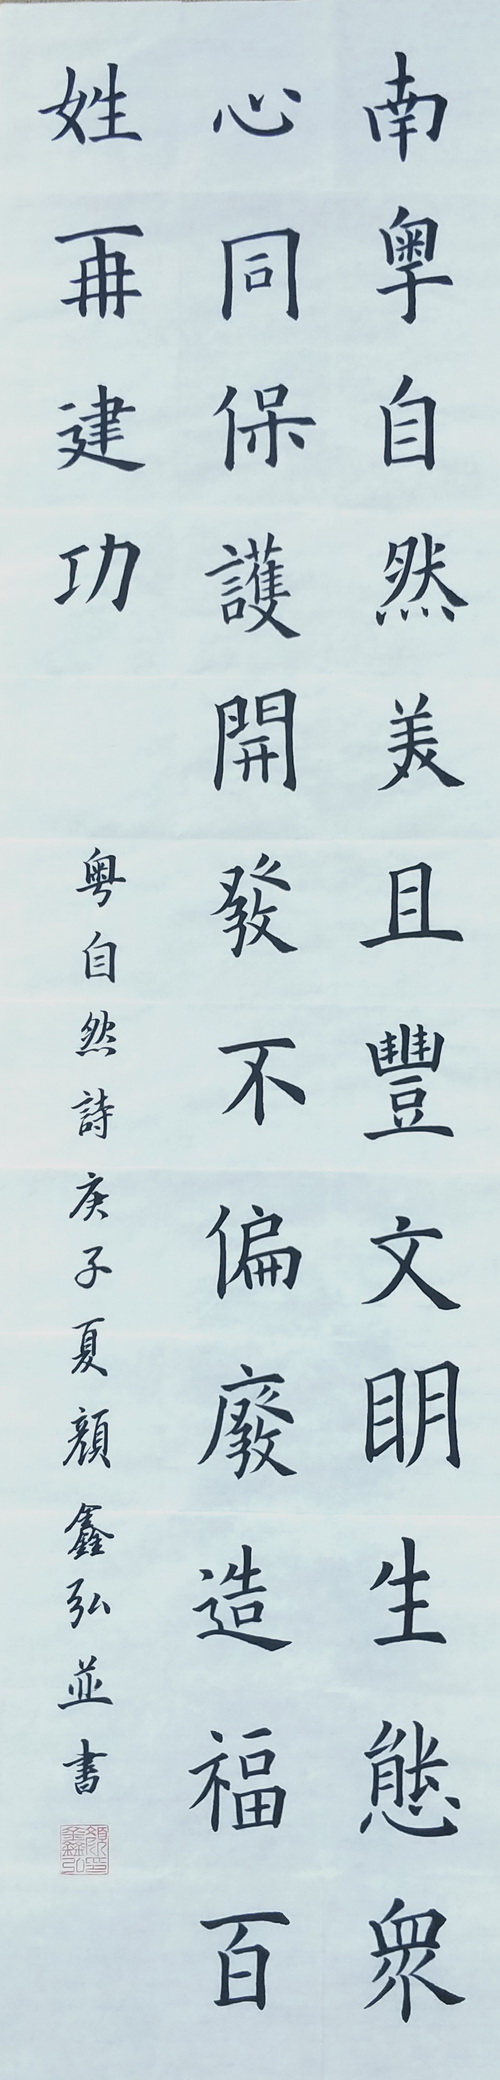 南粤自然美且豐文明生態衆
心同保護開發不偏廢造福百
姓再建功
粤自然詩庚子夏顏鑫弘並書
顏鑫弘印